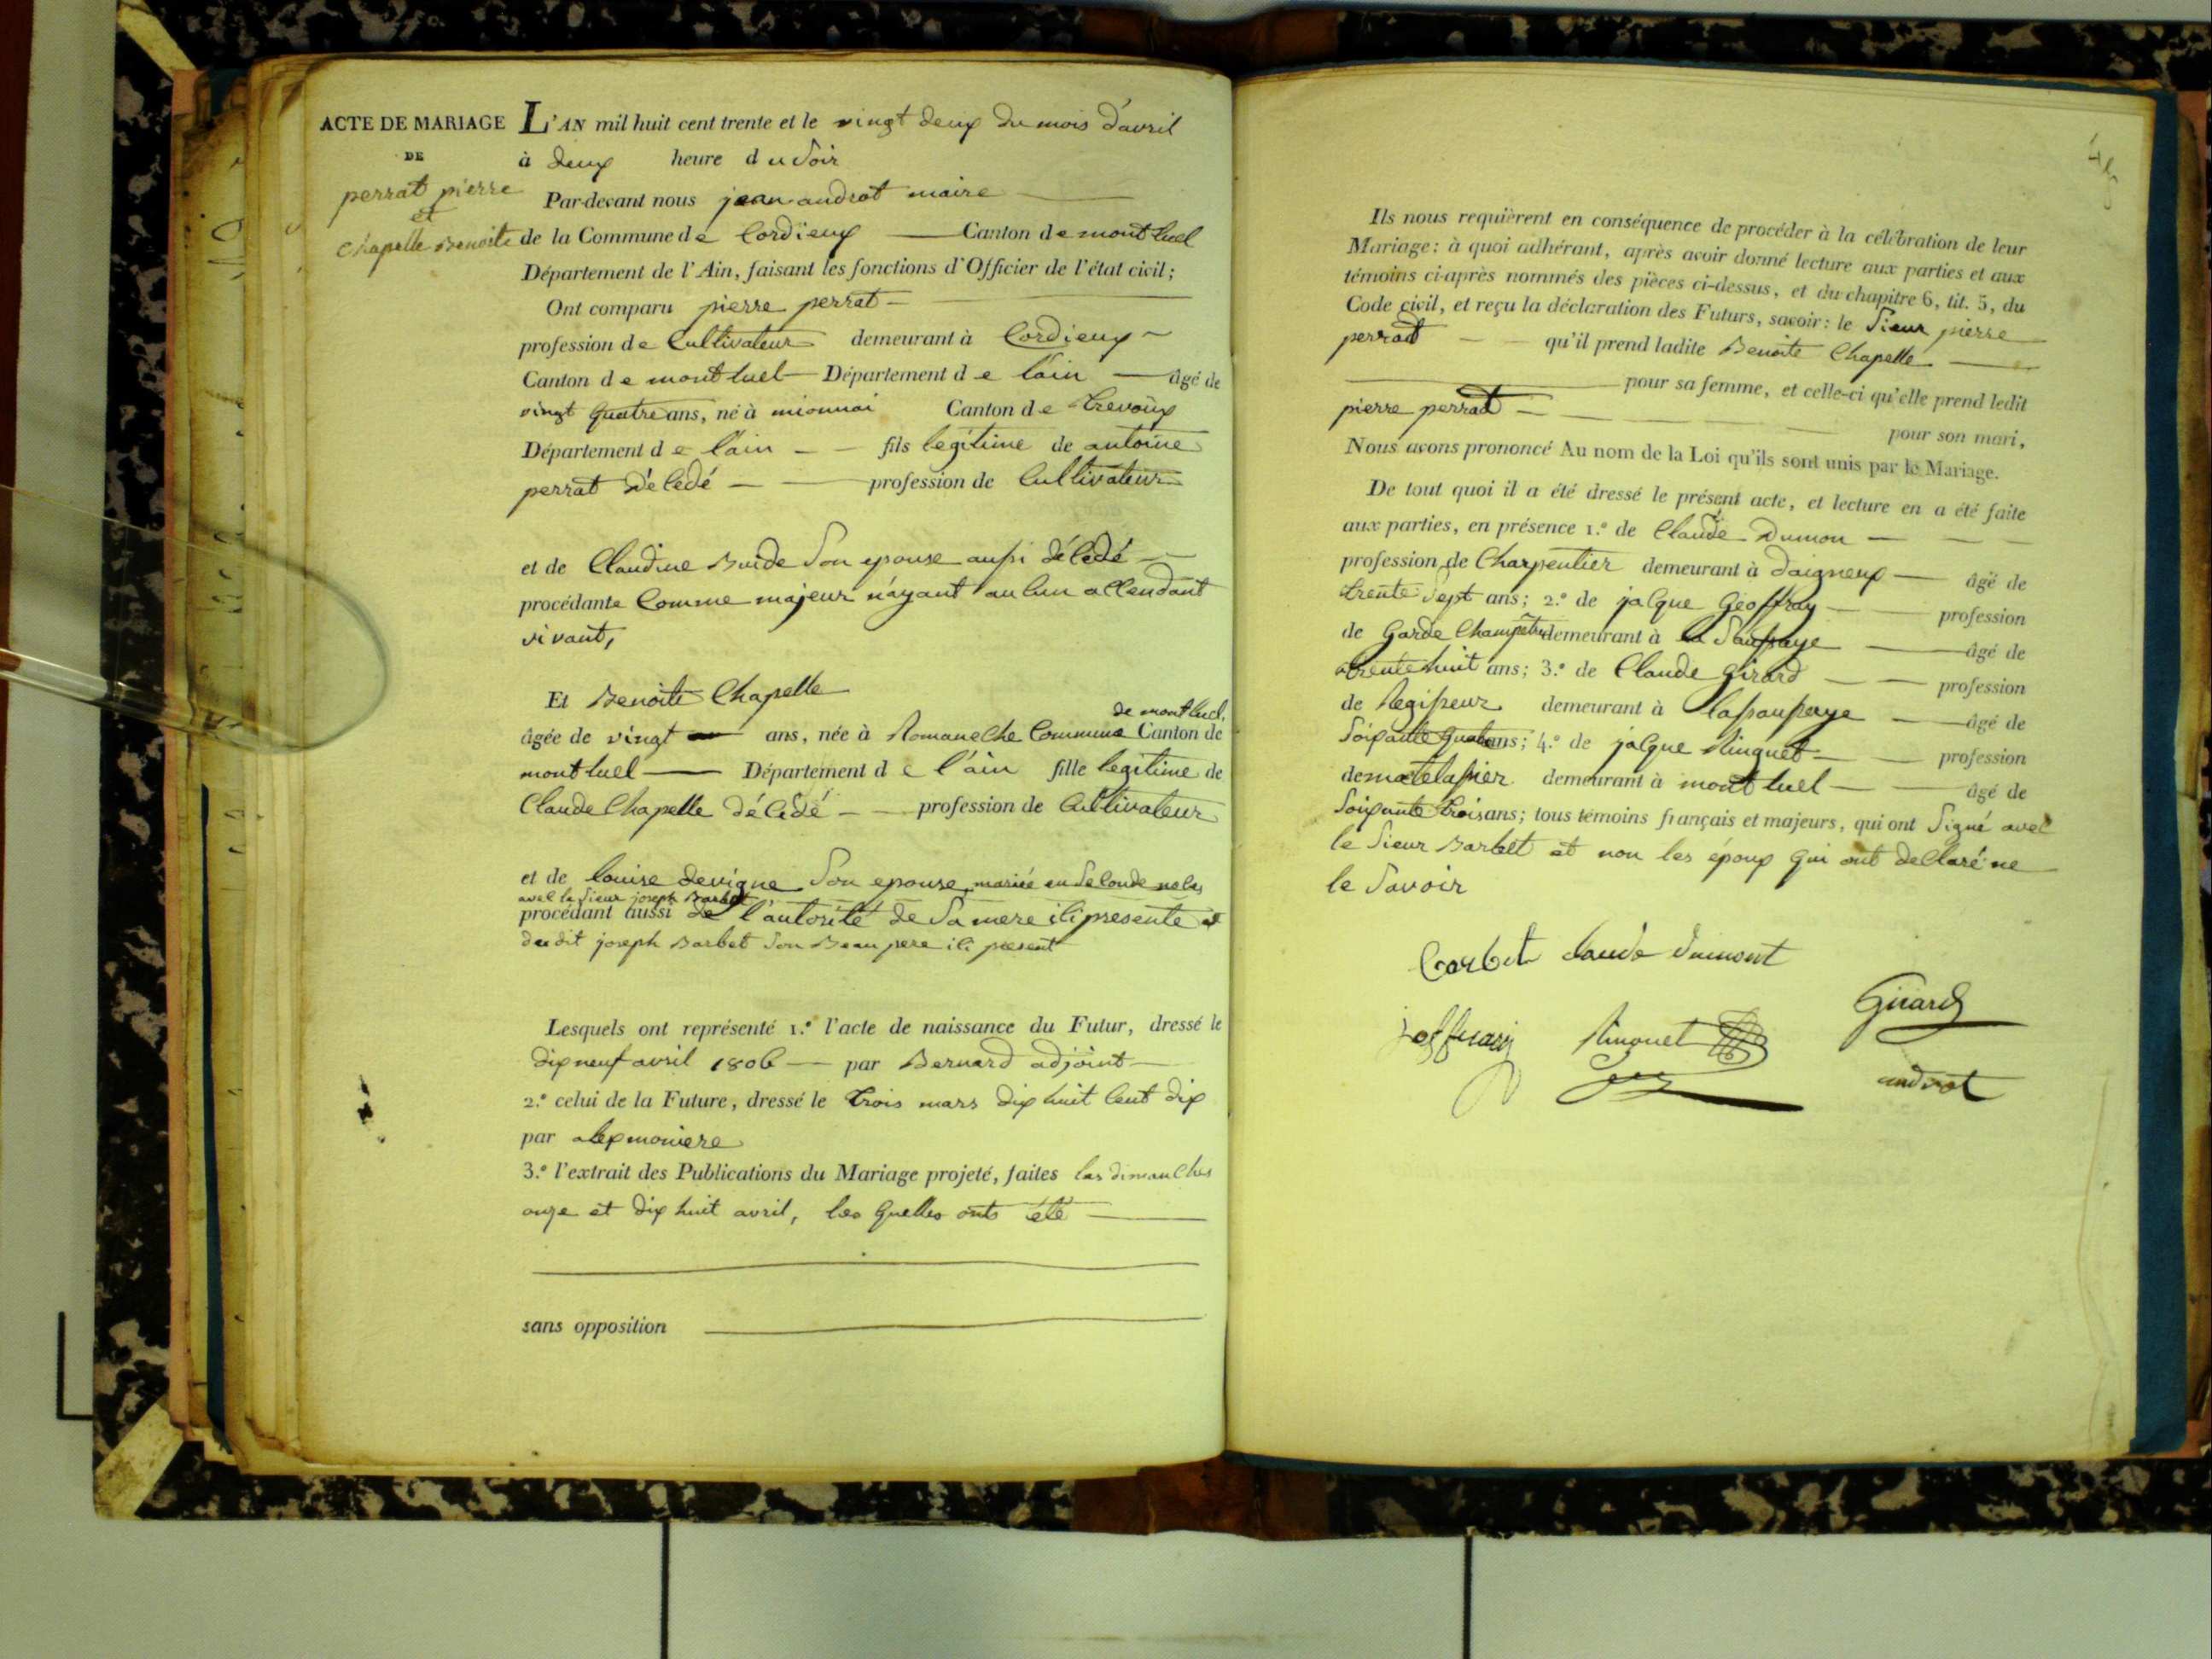 ACTE DE MARIAGE
DE
perrat pierre
et
Chapelle Benoite
L'AN mil huit cent trente et le vingt deux du mois d'avril
à deux heure du Soir
Par-devant nous jean andrat maire
de la Commune de Cordieux Canton de montluel
Département de l'Ain, faisant les fonctions d'Officier de l'état civil;
Ont comparu pierre perrat
profession de Cultivateur demeurant à Cordieux
Canton de montluel Département de l'ain âgé de
vingt quatre ans, né à mionnai Canton de trevoux
Département de l'ain fils legitime de antoine
perrat décédé profession de Cultivateur
et de Claudine son epouse aussi décédé
procédante Comme majeur n'ayant aucun accendant
vivant,
Et Benoite Chapelle
de montluel,
âgée de vingt ans, née à Romaneche Commune Canton de
montluel Département de l'ain fille legitime de
Claude Chapelle décédé profession de Cultivateur
et de louise devigne Son epouse, mariée en Seconde noces
avec le Sieur joseph Barbet
procédant aussi de l'autorité de Sa mere ici presente et
du dit joseph Barbet Son Beau pere ici present
Lesquels ont représenté 1.º l'acte de naissance du Futur, dressé le
dix neuf avril 1806 par Bernard adjoint
2.º celui de la Future, dressé le trois mars dix huit Cent dix
par alexmoniere
3.º l'extrait des Publications du Mariage projeté, faites les dimanches
onze et dix huit avril, les quelles onts été
sans opposition
Ils nous requièrent en conséquence de procéder à la célébration de leur
Mariage: à quoi adhérant, après avoir donné lecture aux parties et aux
témoins ci-après nommés des pièces ci-dessus, et du chapitre 6, tit. 5, du
Code civil, et reçu la déclaration des Futurs, savoir: le Sieur pierre
perrat qu'il prend ladite Benoite Chapelle
pour sa femme, et celle-ci qu'elle prend ledit
pierre perrat pour son mari,
Nous avons prononcé Au nom de la Loi qu'ils sont unis par le Mariage.
De tout quoi il a été dressé le présent acte, et lecture en a été faite
aux parties, en présence 1.º de Claude Dumon
profession de Charpentier demeurant à daigneux âgé de
trente Sept ans; 2.º de jacque Geoffray profession
de Garde Champêtre demeurant à la Saussaye âgé de
trente huit ans; 3.º de Claude girard profession
de Regisseur demeurant à lassaussaye âgé de
Soixante quatre ans; 4.º de jacque Ringuet profession
de matelassier demeurant à montluel âgé de
Soixante trois ans; tous témoins français et majeurs, qui ont Signé avec
le Sieur Barbet et non les époux qui ont declaré ne
le Savoir
barbet claude dumont
Girard
joffuray Ringuet
andrat